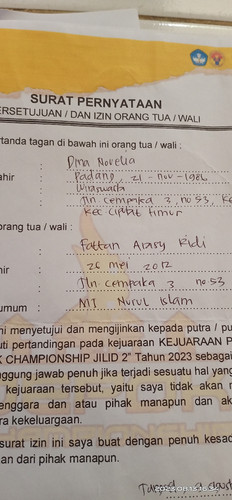 SURAT PERNYATAAN
ERSETUJUAN / DAN IZIN ORANG TUA / WALI
tanda tagan di bawah ini orang tua / wali :
: Dina Novelia
ahir : Padang, 21 - Nov - 1986
: Wiraswasta
: Jln cempaka 3, no 53, Ke
kec ciputat timur
orang tua / wali :
: Fattan Arasy Ridi
hir : 26 mei 2012
: Jln cempaka 3 no 53
umum : MI Nurul Islam
ni menyetujui dan mengijinkan kepada putra / pu
uti pertandingan pada kejuaraan KEJUARAAN P
K CHAMPIONSHIP JILID 2" Tahun 2023 sebagai
nggung jawab penuh jika terjadi sesuatu hal yang
kejuaraan tersebut, yaitu saya tidak akan m
enggara dan atau pihak manapun dan ak
ra kekeluargaan.
surat izin ini saya buat dengan penuh kesad
an dari pihak manapun.